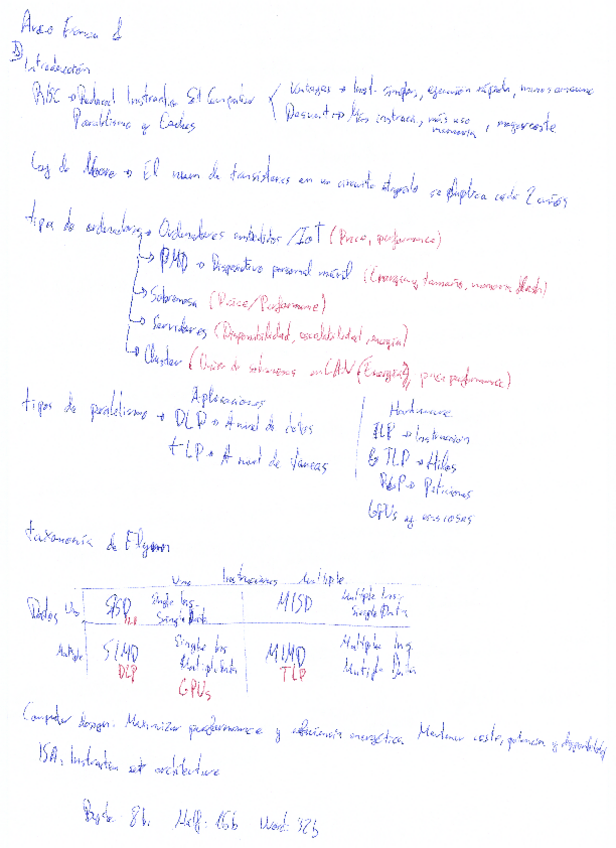 1) Introducción
RISC → Reduced Instruction Set Computer Ventajas → Inst. simples, ejecución rápida, menos consumo
Paralelismo y Caches Desvent → Más instrucc, más uso memoria, mayor coste
Ley de Moore → El num de transistores en un circuito integrado se duplica cada 2 años
tipos de ordenadores → Ordenadores embebidos /IoT (Price, performance)
→ PMD → Dispositivo personal móvil (Energy, tamaño, memoria flash)
→ Sobremesa (Price/Performance)
→ Servidores (Disponibilidad, escalabilidad, energía)
→ Cluster ( de sobremesa en LAN) (Energía, price performance)
Aplicaciones
tipos de paralelismo → DLP → A nivel de datos
TLP → A nivel de tareas
Hardware
ILP → Instrucción
TLP → Hilos
RLP → Peticiones
GPUs y
taxonomía de Flynn
Uno Instrucciones Multiple
Datos Uno SISD Single Ins. Single Data MISD Multiple Ins. Single Data
Multiple SIMD Single Ins Multiple Data MIMD Multiple Ins. Multiple Data
DLP GPUs TLP
Computer design: Maximizar performance y eficiencia energética. Mantener coste, potencia y disponibilidad
ISA: Instruction set architecture
Byte: 8b. Half: 16b Word: 32b